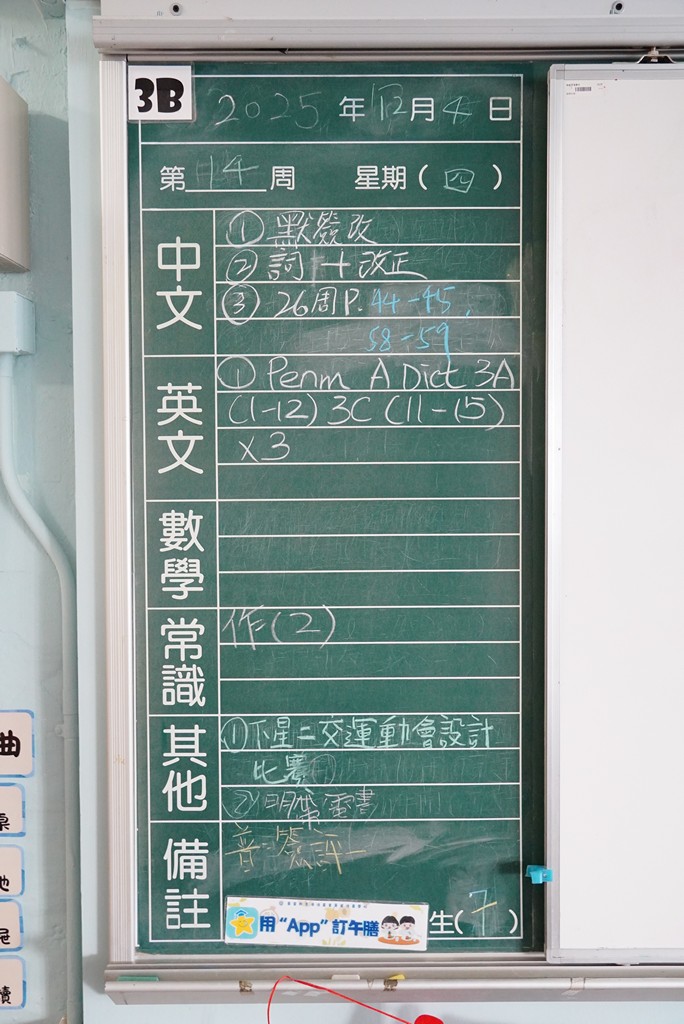 3B
2025 年 12 月 4 日
第 14 周 星期 ( 四 )
中文
① 默簽改
② 詞一十改正
③ 26周P. 44-45,
58-59
英文
① Penm A Dict 3A
(1-12) 3C (11-15)
x3
數學
常識
作(2)
其他
①下星二交運動會設計
比賽
② 明帶電書
備註
普簽評一
用“App”訂午膳
生( 7 )
曲
桌
地
屍
積